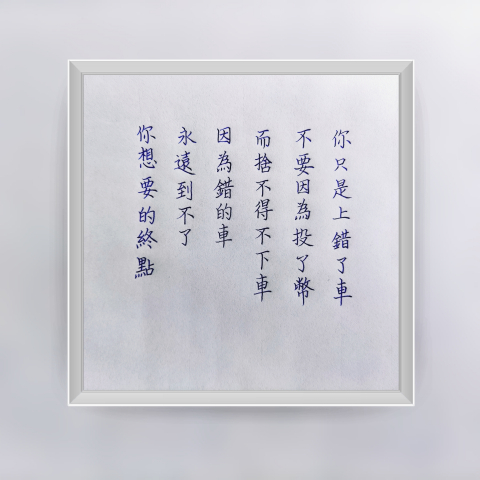 你只是上錯了車
不要因為投了幣
而捨不得不下車
因為錯的車
永遠到不了
你想要的終點